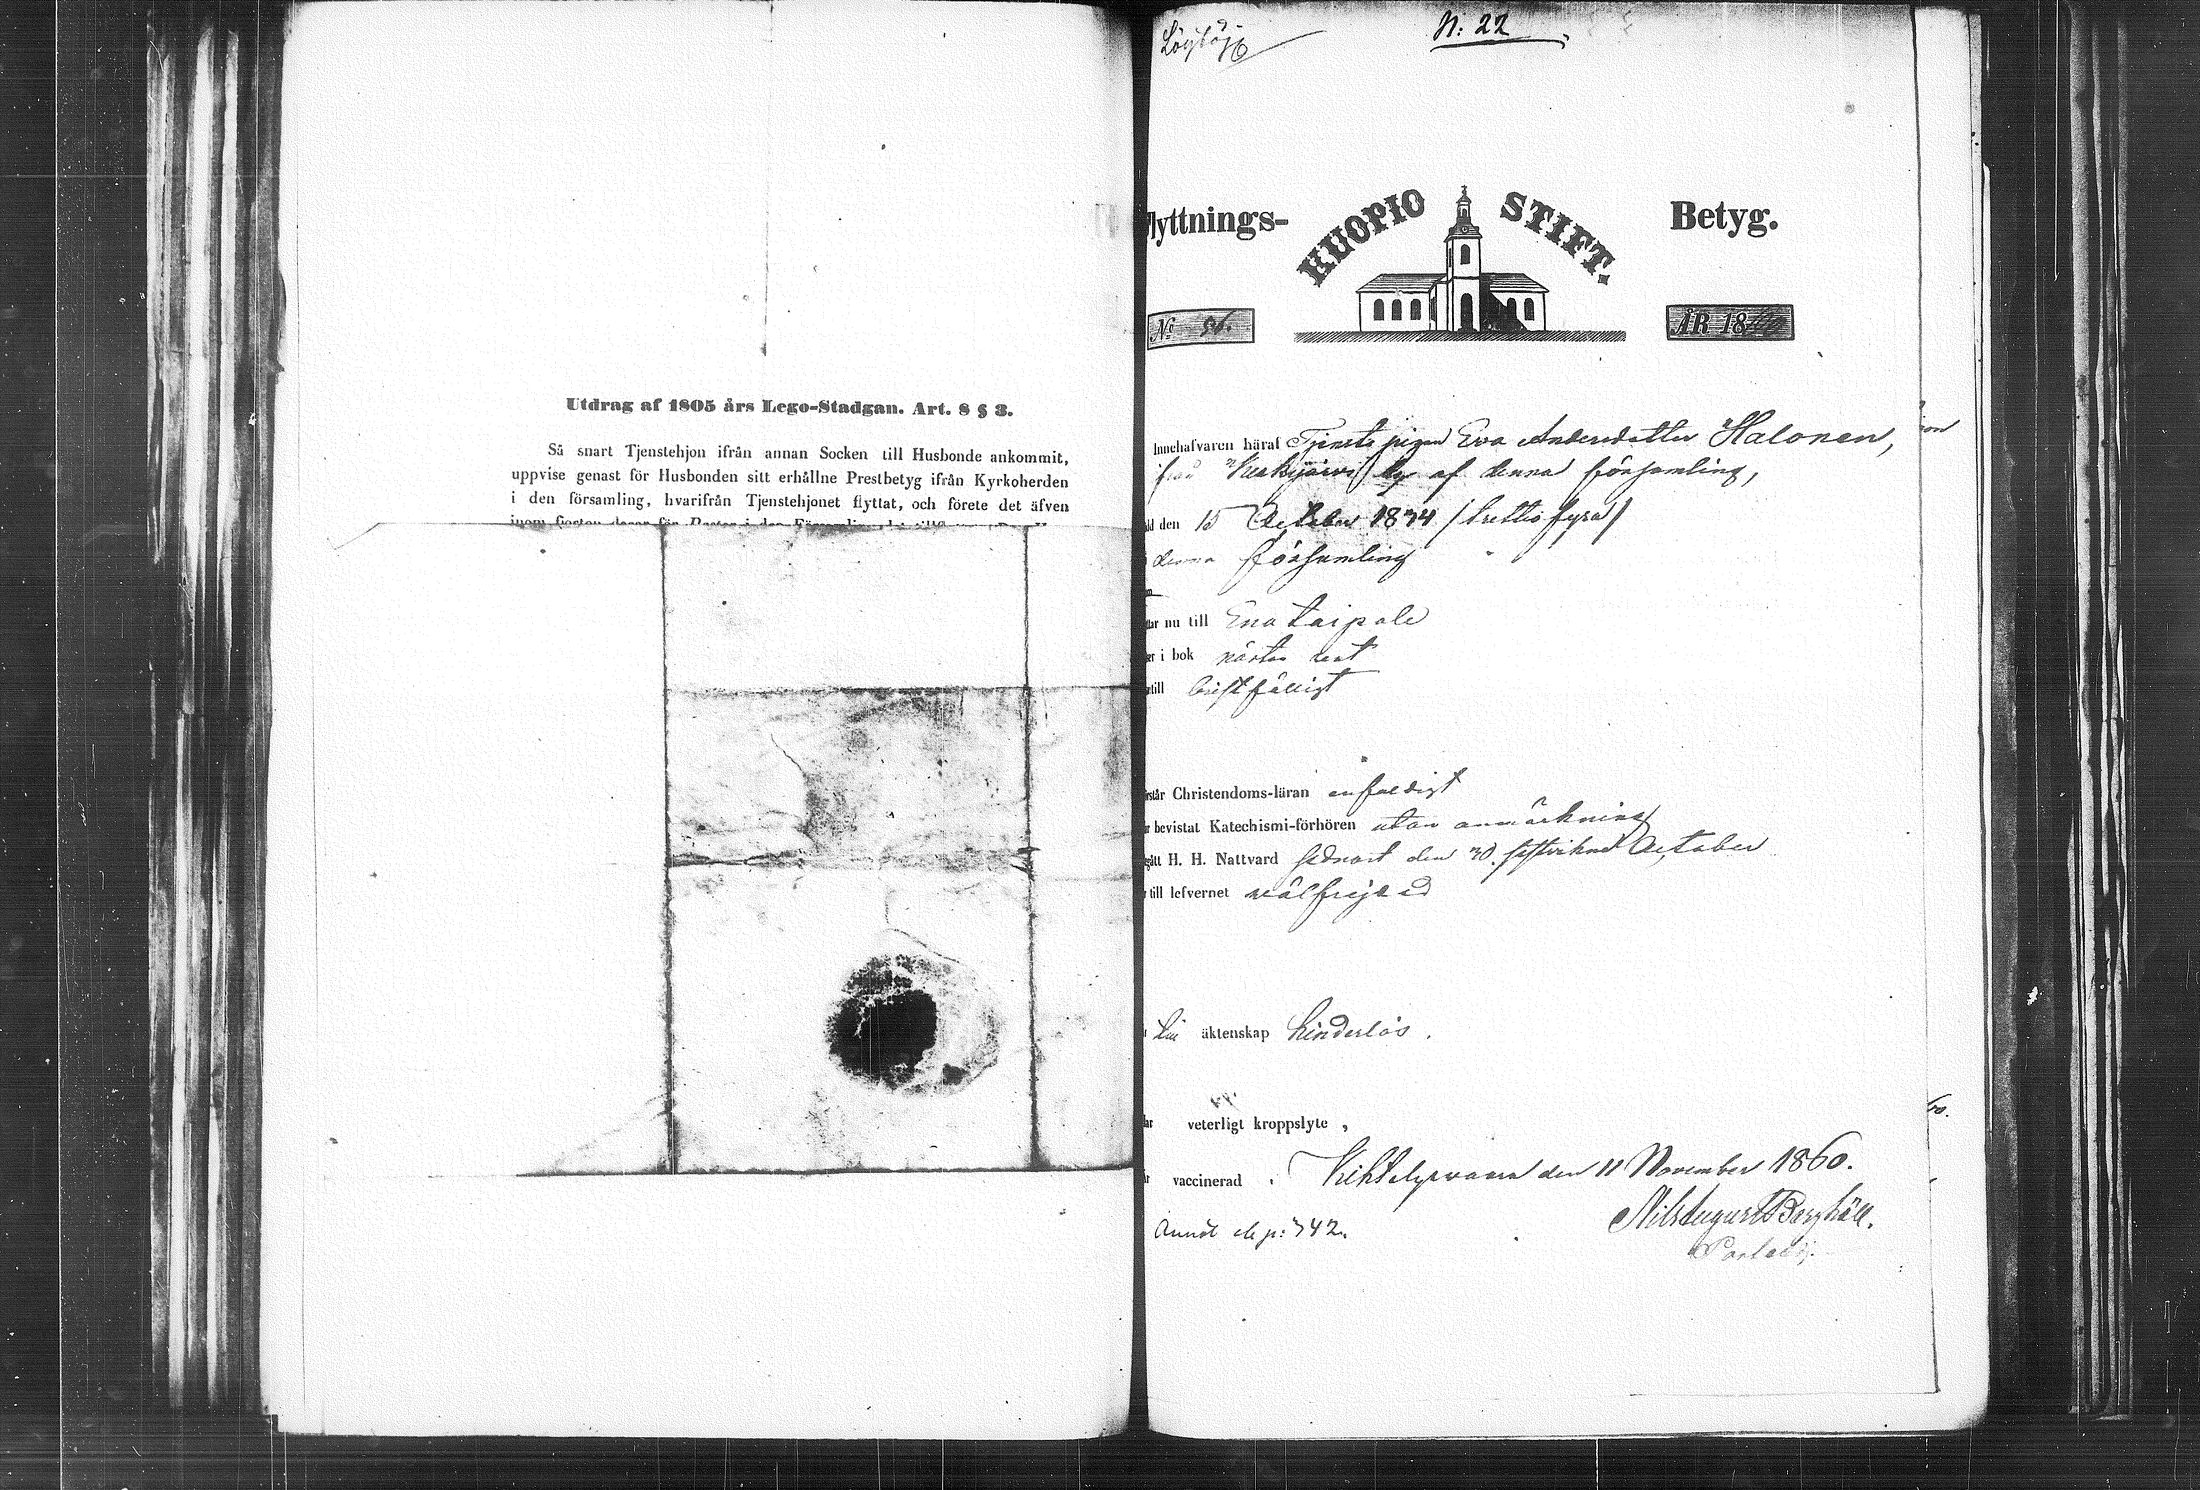 Utdrag af 1805 års Lego-Stadgan. Art. 8 § 3.
Så snart Tjenstehjon ifrån annan Socken till Husbonde ankommit,
uppvise genast för Husbonden sitt erhållne Prestbetyg ifrån Kyrkoherden
i den församling, hvarifrån Tjenstehjonet flyttat, och förete det äfven
N: 22
lyttnings-
KUOPIO STIFT.
Betyg.
No 96.
ÅR 1860
Innehafvaren häraf Tjenste pigan Eva Andersdotter Halonen,
från by af denna församling,
den 15 October 1834 /trettio fyra/
denna församling
nu till Eno Taipale
i bok nästan rent
till bristfälligt
Christendoms-läran enfaldigt
bevistat Katechismi-förhören utan anmärkning
H. H. Nattvard sednast den 30. sistvikne October
till lefvernet välfrejdad
äktenskap hinderlös.
veterligt kroppslyte,
vaccinerad. Kihtelysvaara den 11 November 1860.
Nils August Borghäll.
p: 342.